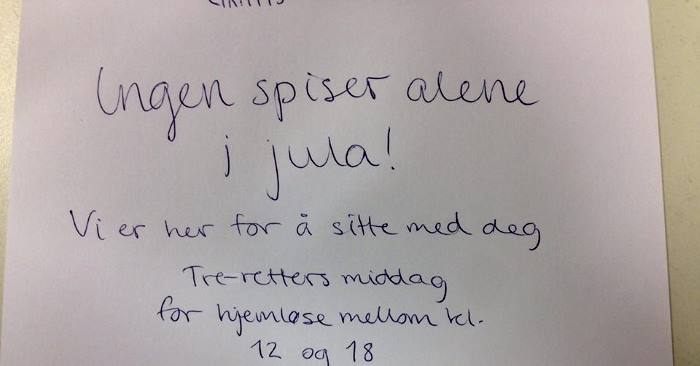 Ingen spiser alene
i jula!
Vi er her for å sitte med deg
Tre-retters middag
for hjemløse mellom kl.
12 og 18